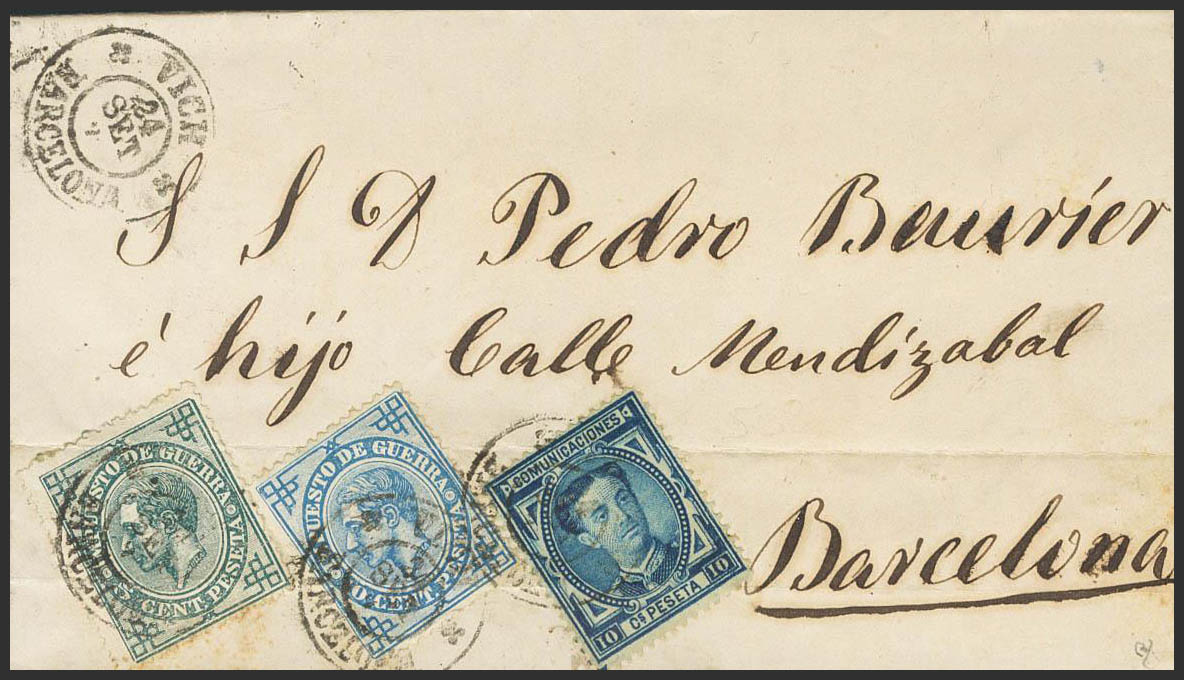 VICH
BARCELONA
24
SET
S S D Pedro Baurier
é hijo Calle Mendizabal
Barcelona
IMPUESTO DE GUERRA
5 CENTS PESETA
IMPUESTO DE GUERRA
10 CENTS PESETA
COMUNICACIONES
10 Cs PESETA 10